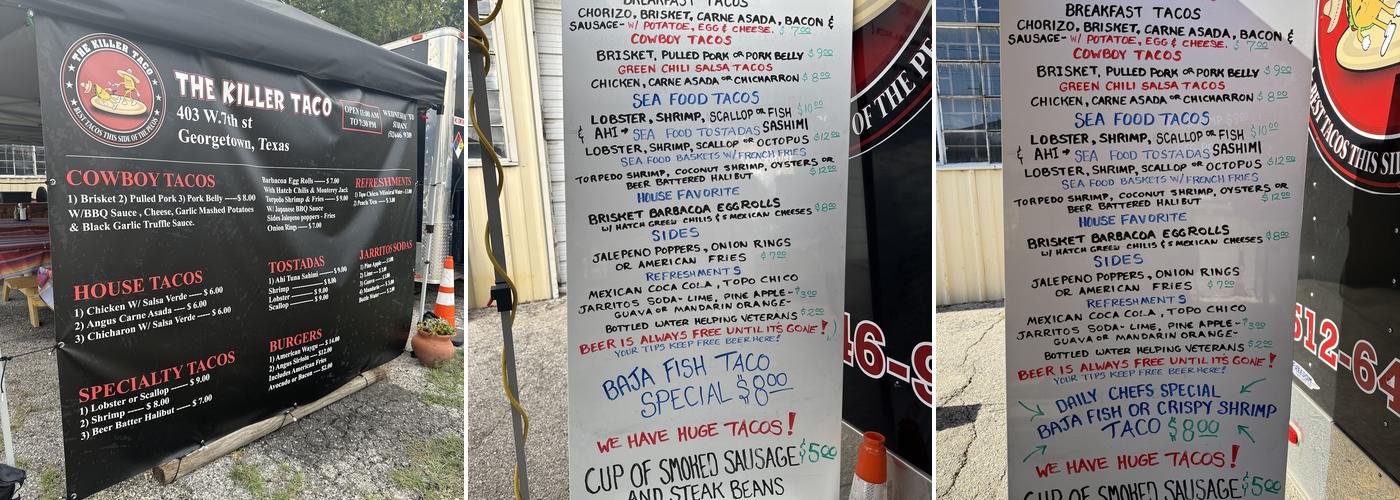 THE KILLER TACO
BEST TACOS THIS SIDE OF THE PECOS
THE KILLER TACO
403 W.7th st
Georgetown, Texas
OPEN 11:00 AM
TO 7:30 PM
COWBOY TACOS
1) Brisket 2) Pulled Pork 3) Pork Belly ----- $ 8.00
W/BBQ Sauce , Cheese, Garlic Mashed Potatoes
& Black Garlic Truffle Sauce.
HOUSE TACOS
1) Chicken W/ Salsa Verde ---- $ 6.00
2) Angus Carne Asada ---- $ 6.00
3) Chicharon W/ Salsa Verde ---- $ 6.00
SPECIALTY TACOS
1) Lobster or Scallop ---- $ 9.00
2) Shrimp ---- $ 8.00
3) Beer Batter Halibut ---- $ 7.00
Barbacoa Egg Rolls ---- $ 7.00
With Hatch Chilis & Monterey Jack
Torpedo Shrimp & Fries ---- $ 9.00
W/ Japanese BBQ Sauce
Sides Jalepeno poppers - Fries
Onion Rings ---- $ 7.00
TOSTADAS
1) Ahi Tuna Sahimi ---- $ 9.00
Shrimp ---- $ 8.00
Lobster ---- $ 9.00
Scallop
BURGERS
1) American Wagyu ---- $ 14.00
2) Angus Sirloin ---- $12.00
Includes American Fries
Avocado or Bacon ---- $2.00
REFRESHMENTS
JARRITOS SODAS
1) Pine Apple
2) Lime
3) Guava
4) Mandarin
Bottle Water
BREAKFAST TACOS
CHORIZO, BRISKET, CARNE ASADA, BACON &
SAUSAGE- W/ POTATOE, EGG & CHEESE. $ 7.00
COWBOY TACOS
BRISKET, PULLED PORK OR PORK BELLY $ 9.00
GREEN CHILI SALSA TACOS
CHICKEN, CARNE ASADA OR CHICHARRON $ 8.00
SEA FOOD TACOS
LOBSTER, SHRIMP, SCALLOP OR FISH $10.00
& AHI → SEA FOOD TOSTADAS SASHIMI
LOBSTER, SHRIMP, SCALLOP OR OCTOPUS $12.00
SEA FOOD BASKETS W/FRENCH FRIES
TORPEDO SHRIMP, COCONUT SHRIMP, OYSTERS OR
BEER BATTERED HALIBUT $12.00
HOUSE FAVORITE
BRISKET BARBACOA EGGROLLS
W/ HATCH GREEN CHILIS & MEXICAN CHEESES $8.00
SIDES
JALEPENO POPPERS, ONION RINGS
OR AMERICAN FRIES $7.00
REFRESHMENTS
MEXICAN COCA COLA, TOPO CHICO
JARRITOS SODA- LIME, PINE APPLE- $3.00
GUAVA OR MANDARIN ORANGE-
BOTTLED WATER HELPING VETERANS $2.00
BEER IS ALWAYS FREE UNTIL ITS GONE!
YOUR TIPS KEEP FREE BEER HERE!
BAJA FISH TACO
SPECIAL $8.00
WE HAVE HUGE TACOS!
CUP OF SMOKED SAUSAGE $5.00
AND STEAK BEANS
OF THE PE
46-9
BREAKFAST TACOS
CHORIZO, BRISKET, CARNE ASADA, BACON &
SAUSAGE- W/ POTATOE, EGG & CHEESE. $ 7.00
COWBOY TACOS
BRISKET, PULLED PORK OR PORK BELLY $ 9.00
GREEN CHILI SALSA TACOS
CHICKEN, CARNE ASADA OR CHICHARRON $ 8.00
SEA FOOD TACOS
LOBSTER, SHRIMP, SCALLOP OR FISH $10.00
& AHI → SEA FOOD TOSTADAS SASHIMI
LOBSTER, SHRIMP, SCALLOP OR OCTOPUS $12.00
SEA FOOD BASKETS W/FRENCH FRIES
TORPEDO SHRIMP, COCONUT SHRIMP, OYSTERS OR
BEER BATTERED HALIBUT $12.00
HOUSE FAVORITE
BRISKET BARBACOA EGGROLLS
W/ HATCH GREEN CHILIS & MEXICAN CHEESES $8.00
SIDES
JALEPENO POPPERS, ONION RINGS
OR AMERICAN FRIES $7.00
REFRESHMENTS
MEXICAN COCA COLA, TOPO CHICO
JARRITOS SODA- LIME, PINE APPLE- $3.00
GUAVA OR MANDARIN ORANGE-
BOTTLED WATER HELPING VETERANS $2.00
BEER IS ALWAYS FREE UNTIL ITS GONE!
YOUR TIPS KEEP FREE BEER HERE!
DAILY CHEFS SPECIAL
BAJA FISH OR CRISPY SHRIMP
TACO $8.00
WE HAVE HUGE TACOS!
CUP OF SMOKED SAUSAGE $5.00
BEST TACOS THIS SID
512-64